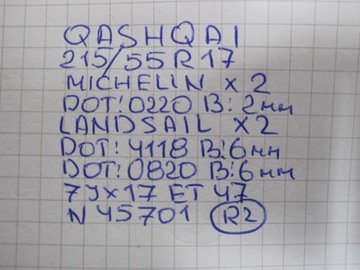 QASHQAI
215/55R17
MICHELIN x 2
DOT: 0220 B: 2мм
LANDSAIL x2
DOT: 4118 B: 6мм
DOT: 0820 B: 6мм
7Jx17 ET 47
N 45701 R2